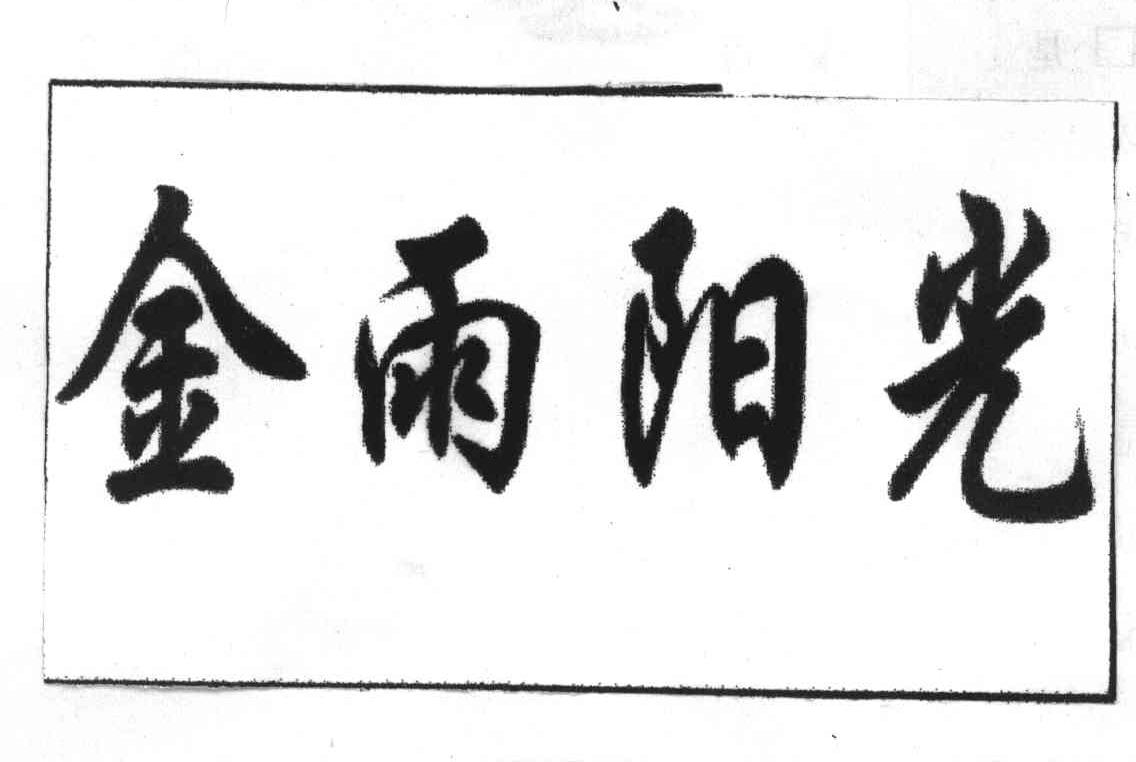 金雨阳光